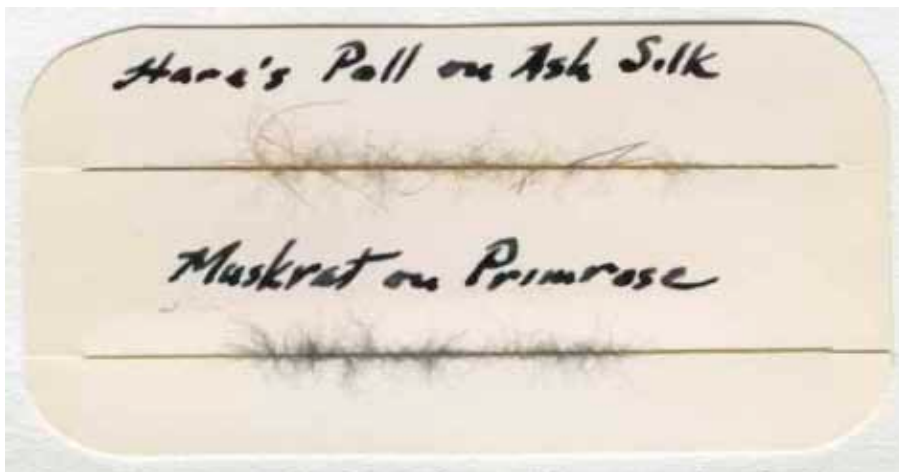 Hare's Poll on Ash Silk
Muskrat on Primrose